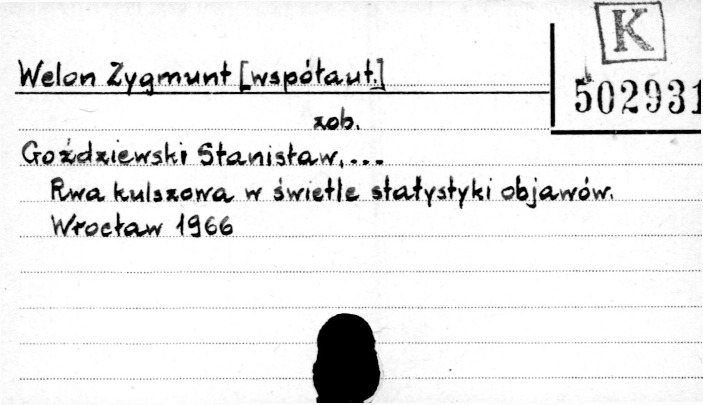 K
Welon Zygmunt [współaut.]
502931
zob.
Goździewski Stanisław,...
Rwa kulszowa w świetle statystyki objawów.
Wrocław 1966